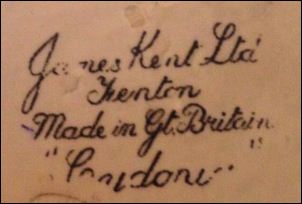 James Kent Ltd
Fenton
Made in Gt. Britain